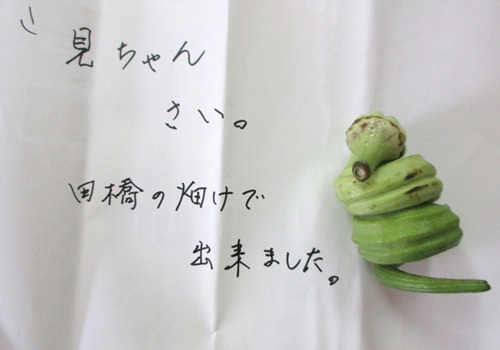 見ちゃん
さい。
田橋の畑けで
出来ました。